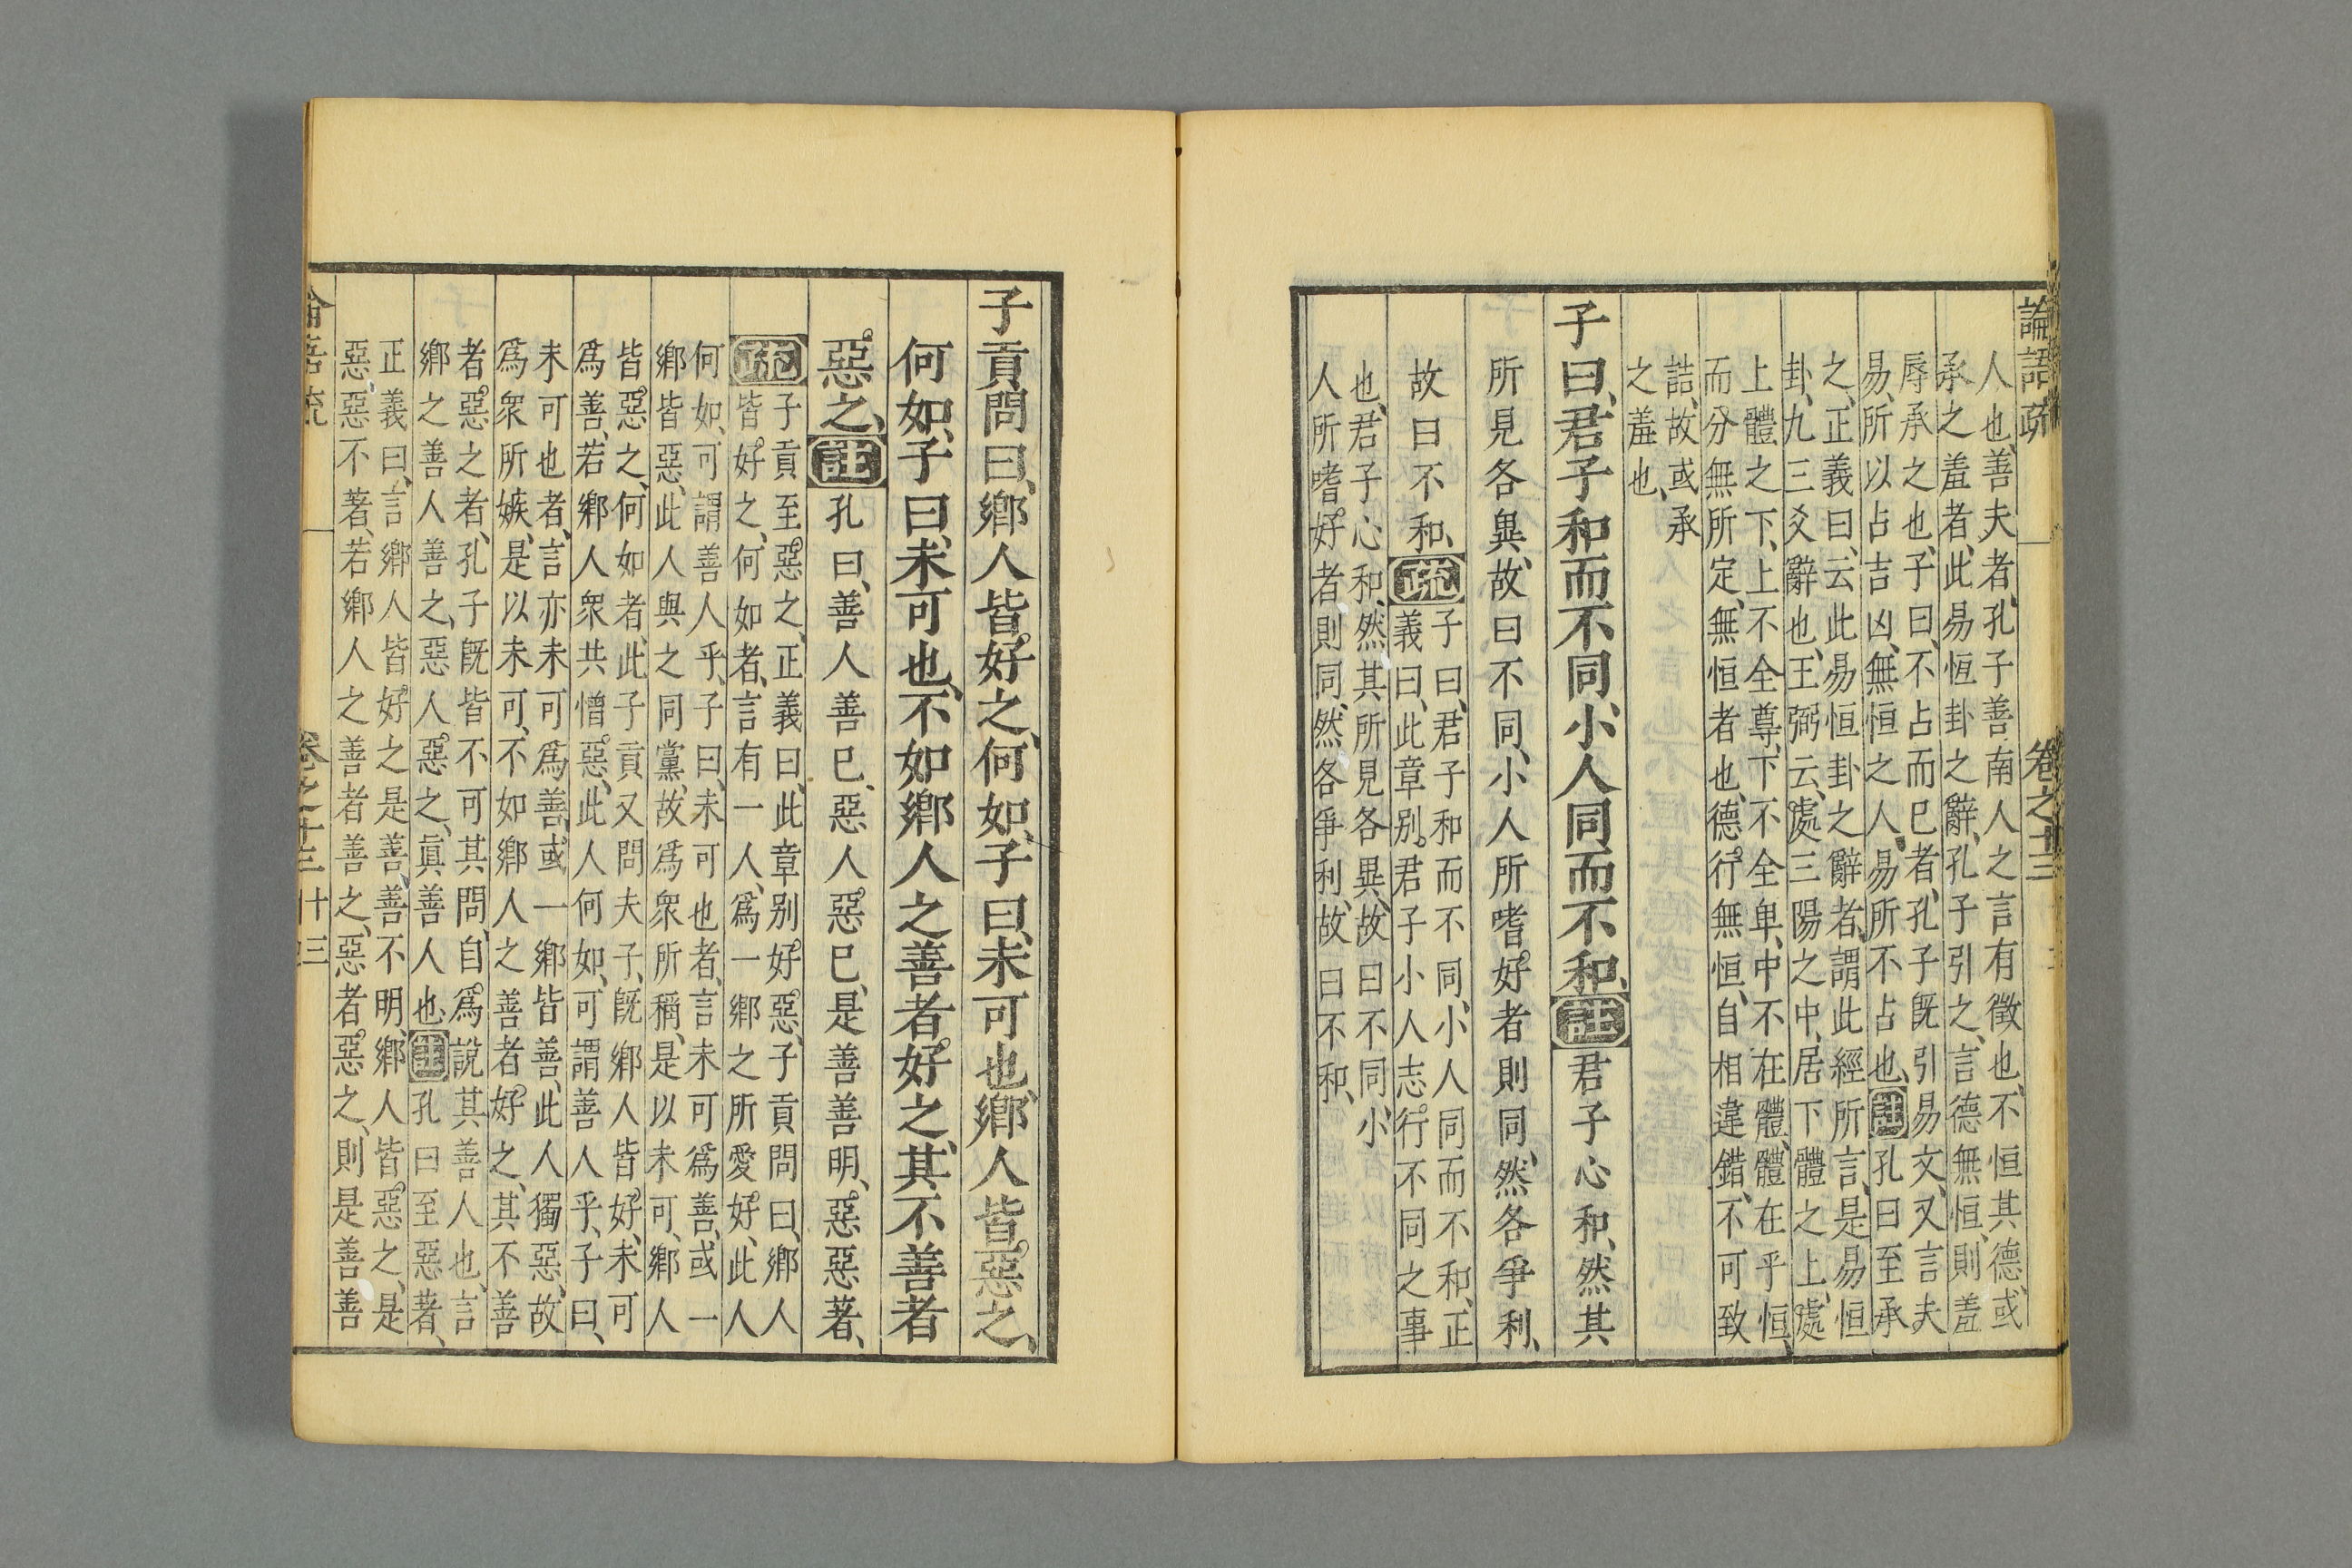 論語疏 卷之十三
人也、善夫者、孔子善南人之言有徵也、不恒其德、或
承之羞者、此易恆卦之辭、孔子引之、言德無恒、則羞
辱承之也、子曰、不占而已者、孔子既引易文、又言夫
易、所以占吉凶、無恒之人、易所不占也、註孔曰至承
之、正義曰、云此易恒卦之辭者、謂此經所言、是易恒
卦、九三爻辭也、王弼云、處三陽之中、居下體之上、處
上體之下、上不全尊、下不全卑、中不在體、體在乎恒、
而分無所定、無恒者也、德行無恒、自相違錯、不可致
詰、故或承
之羞也、
子曰、君子和而不同、小人同而不和、註君子心和、然其
所見各異、故曰不同、小人所嗜好者則同、然各爭利、
故曰不和、疏
子曰、君子和而不同、小人同而不和、正
義曰、此章別君子小人志行不同之事
也、君子心和、然其所見各異、故曰不同、小
人所嗜好者、則同、然各爭利、故曰不和、
子貢問曰、鄉人皆好之、何如、子曰、未可也、鄉人皆惡之、
何如、子曰、未可也、不如鄉人之善者好之、其不善者
惡之、註孔曰、善人善已、惡人惡已、是善善明、惡惡著、
疏
子貢至惡之、正義曰、此章別好惡、子貢問曰、鄉人
皆好之、何如者、言有一人、爲一鄉之所愛好、此人
何如、可謂善人乎、子曰、未可也者、言未可爲善、或一
鄉皆惡、此人與之同黨、故爲衆所稱、是以未可、鄉人
皆惡之、何如者、此子貢又問夫子、既鄉人皆好、未可
爲善、若鄉人衆共憎惡、此人何如、可謂善人乎、子曰、
未可也者、言亦未可爲善、或一鄉皆善、此人獨惡、故
爲衆所嫉、是以未可、不如鄉人之善者好之、其不善
者惡之者、孔子既皆不可其問、自爲說其善人也、言
鄉之善人善之、惡人惡之、眞善人也、註孔曰至惡著、
正義曰、言鄉人皆好之是善、善不明、鄉人皆惡之、是
惡惡不著、若鄉人之善者善之、惡者惡之、則是善善
卷之十三 十三